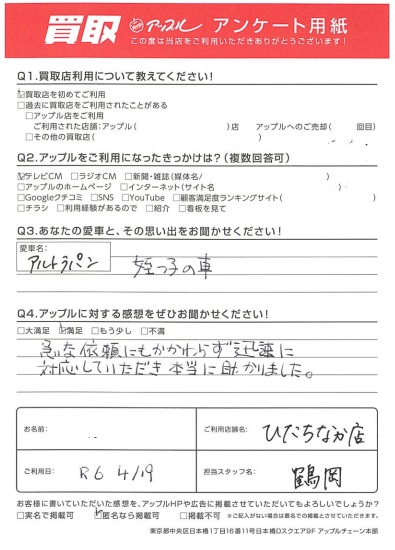 買取 アップル アンケート用紙
この度は当店をご利用いただきありがとうございます！
Q1.買取店利用について教えてください！
☑買取店を初めてご利用
□過去に買取店をご利用されたことがある
□アップル店をご利用
ご利用された店舗：アップル（ ）店 アップルへのご売却（ 回目）
□その他の買取店（ ）
Q2.アップルをご利用になったきっかけは？（複数回答可）
☑テレビCM □ラジオCM □新聞・雑誌（媒体名/ ）
□アップルのホームページ □インターネット（サイト名 ）
□Googleクチコミ □SNS □YouTube □顧客満足度ランキングサイト（ ）
□チラシ □利用経験があるので □紹介 □看板を見て
Q3.あなたの愛車と、その思い出をお聞かせください！
愛車名：
アルトラパン 姪っ子の車
Q4.アップルに対する感想をぜひお聞かせください！
□大満足 ☑満足 □もう少し □不満
急な依頼にもかかわらず迅速に
対応していただき本当に助かりました。
お名前： ご利用店舗名： ひたちなか店
ご利用日： R6 4/19 担当スタッフ名： 鶴岡
お客様に書いていただいた感想を、アップルHPや広告に掲載させていただいてもよろしいでしょうか？
□実名で掲載可 ☑匿名なら掲載可 □掲載不可 ※ご記入がない場合は匿名での掲載とさせていただきます。
東京都中央区日本橋1丁目16番11号日本橋Dスクエア9F アップルチェーン本部